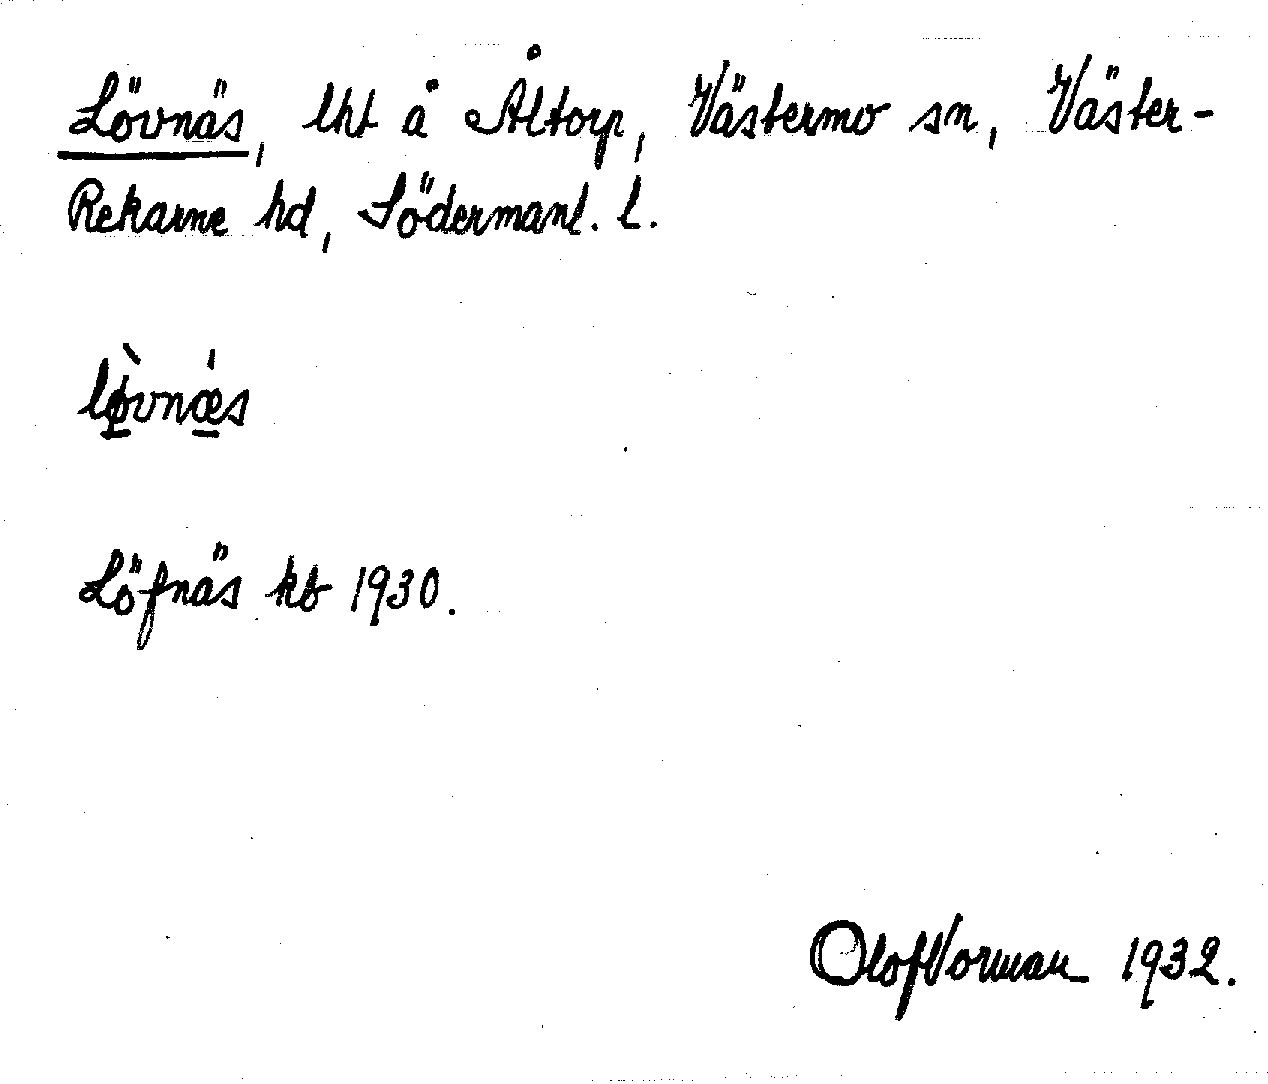 Lövnäs, lht å Åltorp, Västermo sn, Väster-
Rekarne hd, Södermanl. l.
lø̀vnæ̍s
Löfnäs kb 1930.
Olof Vorman 1932.